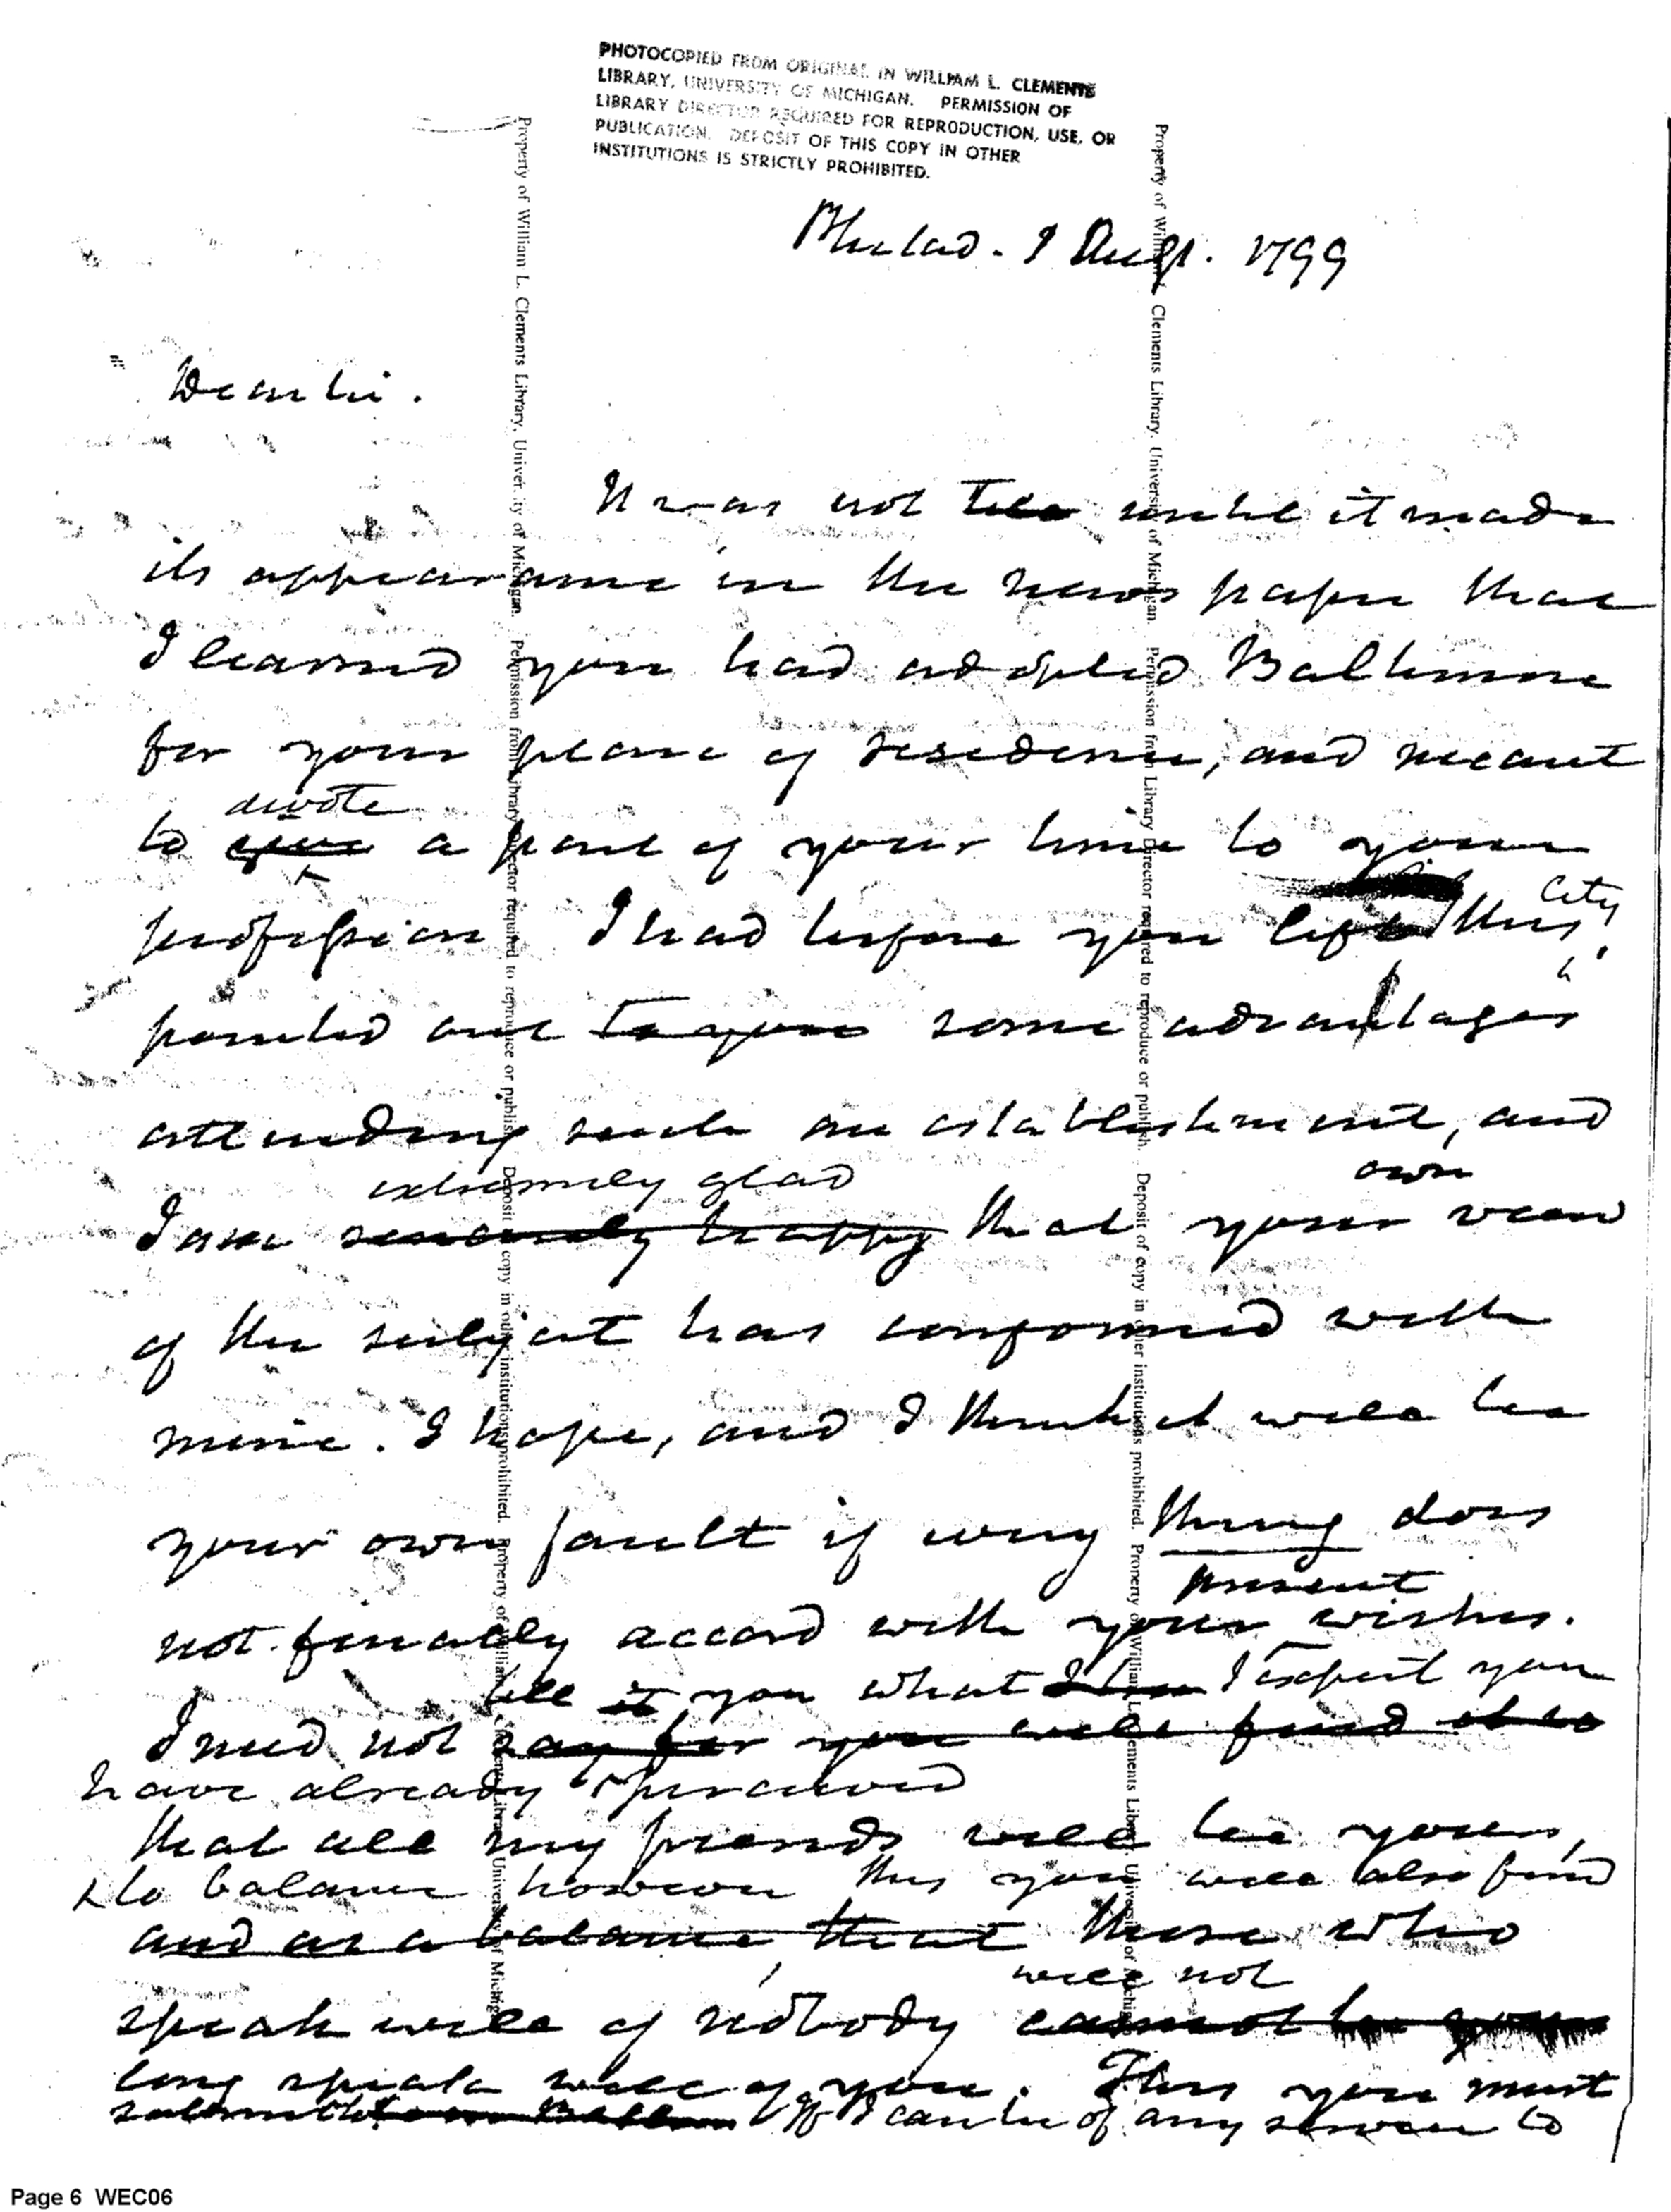 PHOTOCOPIED FROM ORIGINAL IN WILLIAM L. CLEMENTS
LIBRARY, UNIVERSITY OF MICHIGAN. PERMISSION OF
LIBRARY DIRECTOR REQUIRED FOR REPRODUCTION, USE, OR
PUBLICATION. DEPOSIT OF THIS COPY IN OTHER
INSTITUTIONS IS STRICTLY PROHIBITED.
Property of William L. Clements Library, University of Michigan. Permission from Library Director required to reproduce or publish. Deposit of copy in other institutions prohibited. Property of William L. Clements Library University of Michigan
Property of William L. Clements Library, University of Michigan. Permission from Library Director required to reproduce or publish. Deposit of copy in other institutions prohibited. Property of William L. Clements Library University of Michigan
Philad. 1799
Dear Sir.
It was not until it made
its appearance in the news paper that
I learned you had adopted Baltimore
for your place of residence, and meant
devote
to give a part of your time to your
City
profession I had before you left this
pointed out to you some advantages
attending such an establishment, and
extremely glad own
I am sincerely happy that your view
of the subject has conformed with
mine. I hope, and I think it will be
your own fault if every thing does
present
not finally accord with your wishes.
tell it you what I expect you
I need not say for you will find it so
have already perceived
that all my friends will be yours,
to balance however this you will also find
and as a balance, that those who
will not
speak well of nobody cannot be you
long speak well of you. This you must
submit to If I can be of any service to
Page 6 WEC06